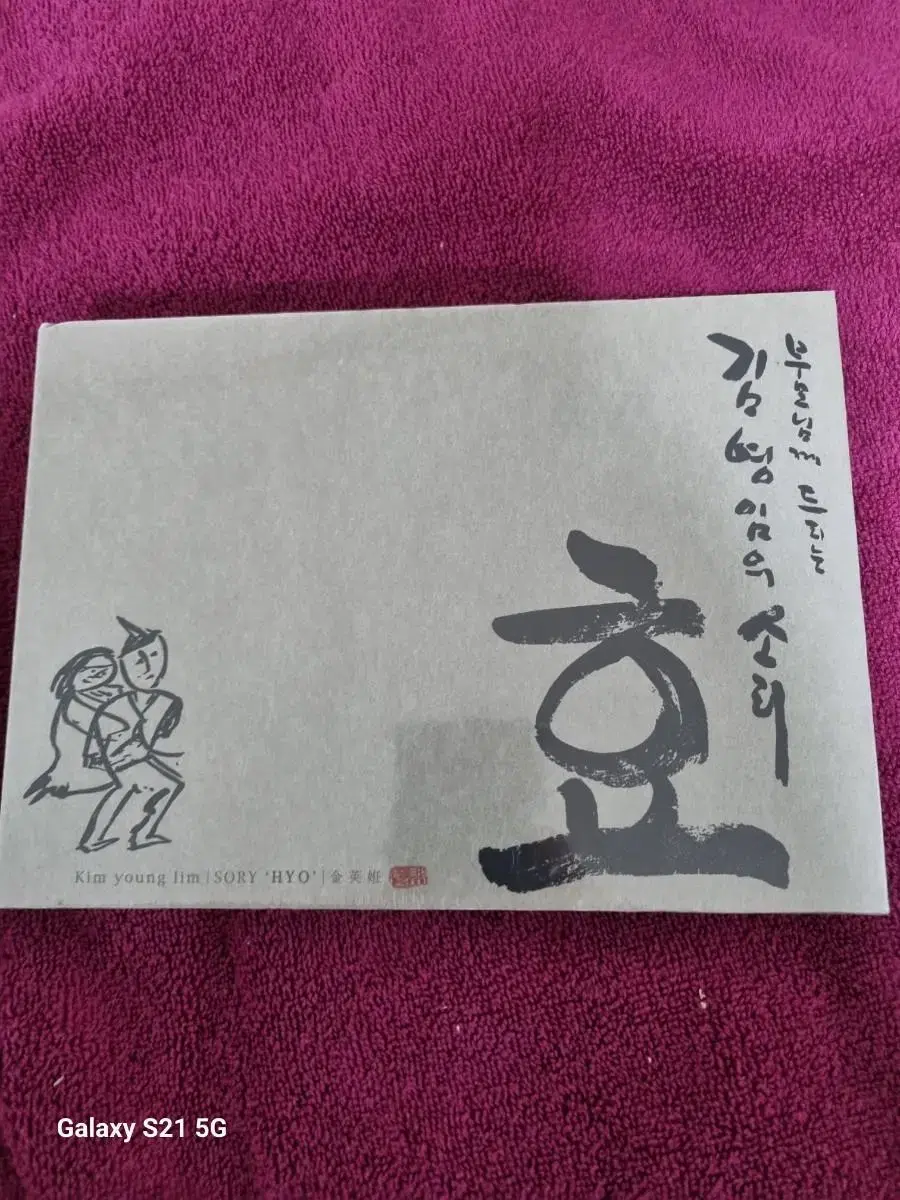 부모님께 드리는
김영임의 소리
효
Kim young Iim | SORY 'HYO' | 金英姙
Galaxy S21 5G